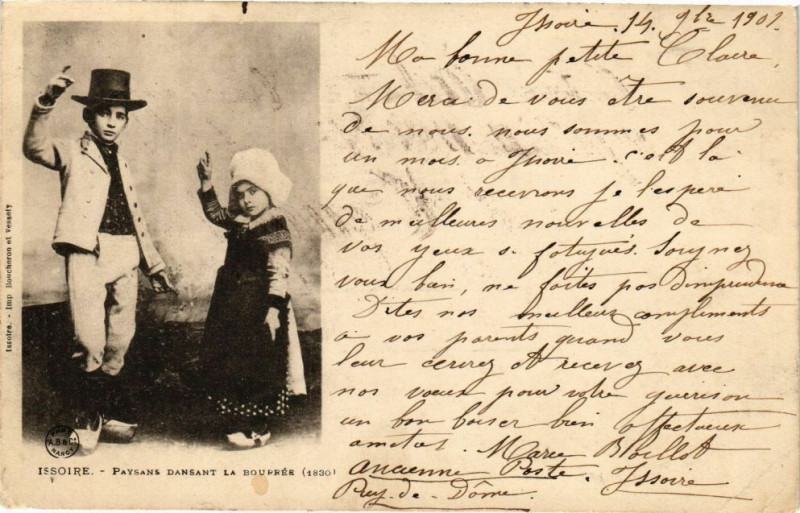 Issoire. 14. 9bre 1901.
Ma bonne petite Claire,
Merci de vous être souvenu
de nous. nous sommes pour
un mois à Issoire. c'est là
que nous recevrons je l'espère
de meilleures nouvelles de
vos yeux si fatigués. Soignez
vous bien, ne faites pas d'imprudence
Dites nos meilleurs compliments
à vos parents quand vous
leur écrirez et recevez avec
nos voeux pour votre guérison
un bon baiser bien affectueux
Marie Boillot
ancienne Poste. Issoire
Puy-de-Dôme.
Issoire. - Imp Boucheron et Vessely
PARIS
A.B & Cie
NANCY
ISSOIRE. - PAYSANS DANSANT LA BOURRÉE (1830)